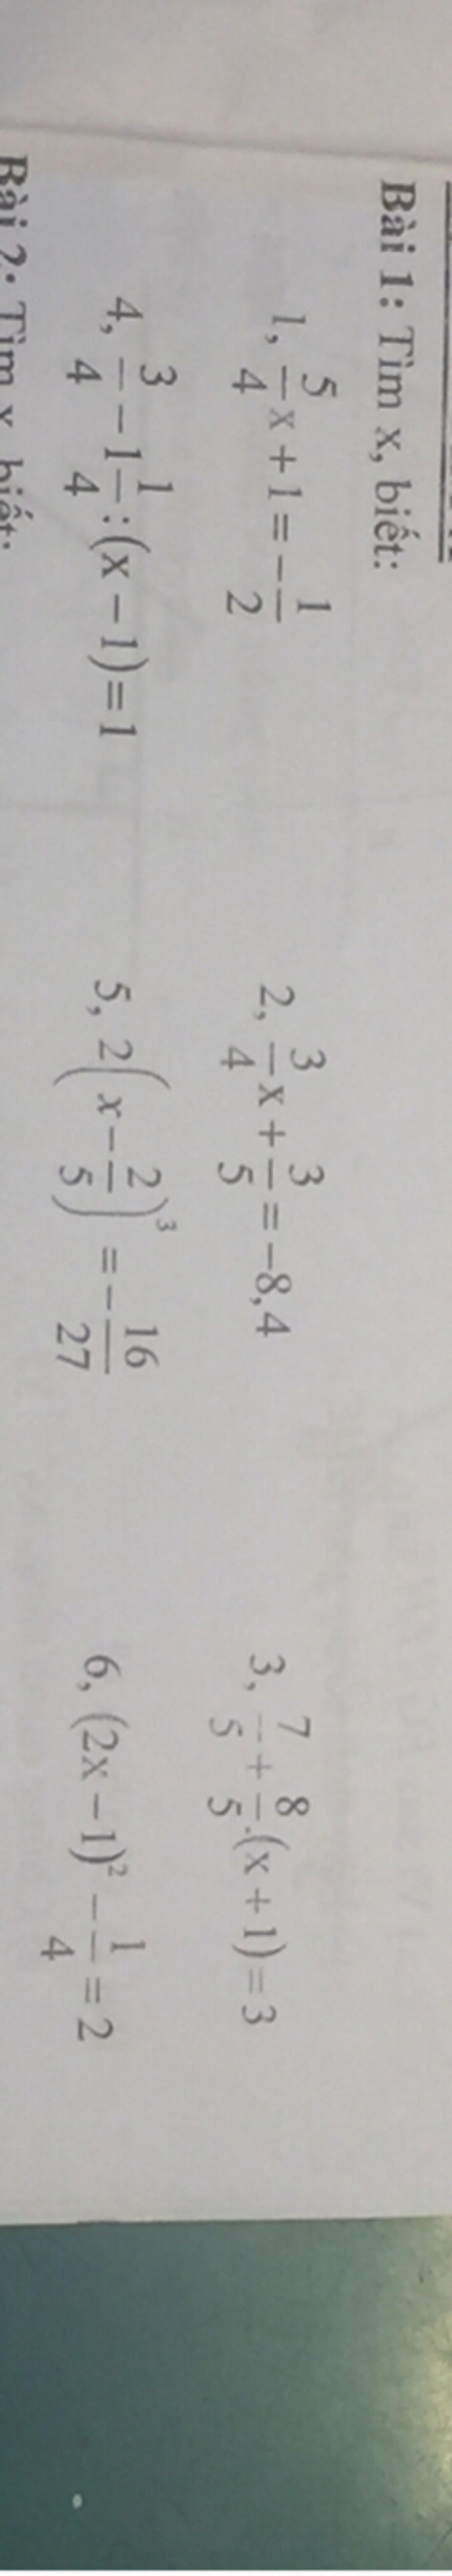 Bài 1: Tìm x, biết:
1, 5/4 x + 1 = -1/2 2, 3/4 x + 3/5 = -8,4 3, 7/5 + 8/5 .(x + 1) = 3
4, 3/4 - 1 1/4 : (x - 1) = 1 5, 2(x - 2/5)³ = -16/27 6, (2x - 1)² - 1/4 = 2
Bài 2: Tìm x, biết: